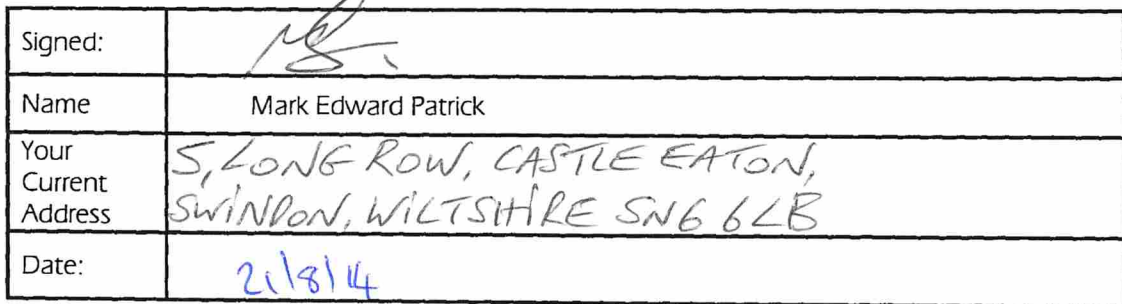 Signed:
Name Mark Edward Patrick
Your Current Address 5, LONG ROW, CASTLE EATON,
SWINDON, WILTSHIRE SN6 6LB
Date: 21/8/14